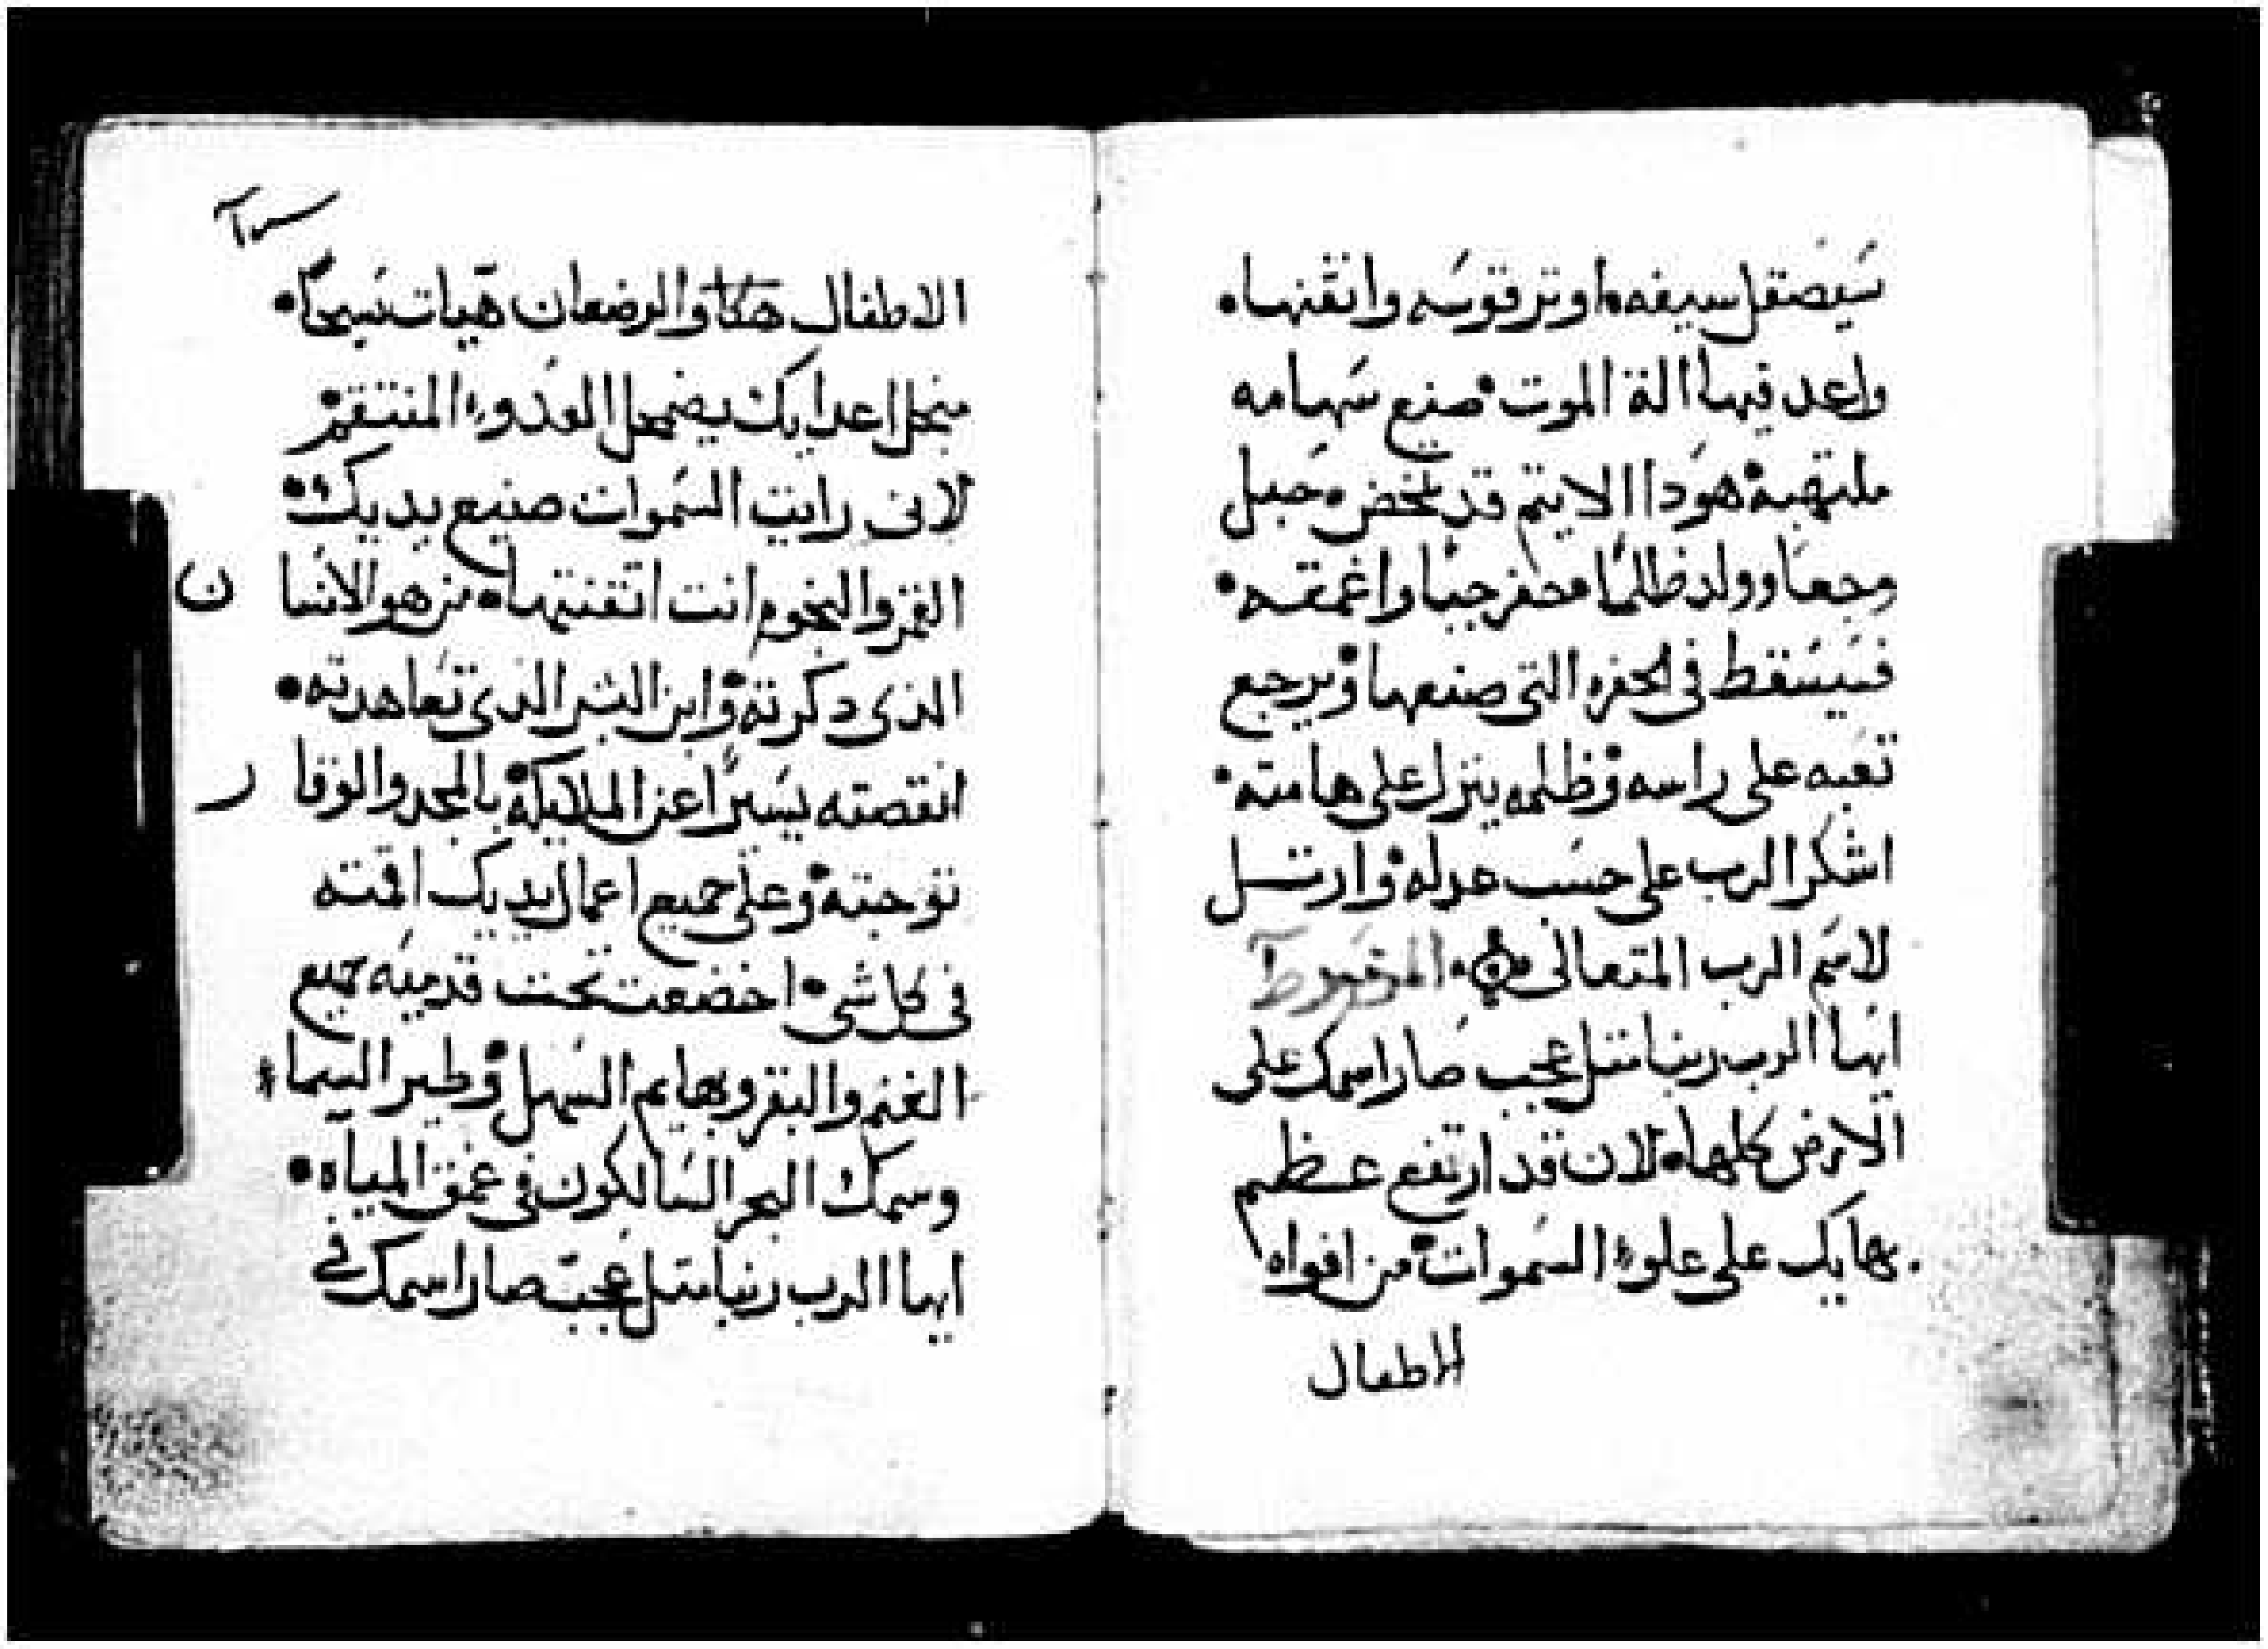 سيصقل سيفه اوتر قوسه واتقنها.
واعد فيها الة الموت صنع سهامه
ملتهبة هودا الايتم قد تمخض حبل
وجعا وولد ظلما حفر جبا واعمقه.
فسيسقط فى الحفره التى صنعها ويرجع
تعبه على راسه وظلمه ينزل على هامته.
اشكر الرب على حسب عدله وارتل
لاسم الرب المتعالى المزمور
ايها الرب ربنا متل عجب صار اسمك على
الارض كلها لان قد ارتفع عظيم
بهايك على علوء السموات من افواه
الاطفال
الاطفال والرضعان هيات سبحا.
منجل اعدايك يضمحل العدوء المنتقم
لانى رايت السموات صنيع يديك.
القمر والنجوم انت اتقنتها من هو الانسان
الذى دكرته وابن البشر الذى تعاهدته.
انقصته يسيرا عن الملايكة بالمجد والوقار
توجته وعلى جميع اعمال يديك اقمته
فى كل شى اخضعت تحت قدميه جميع
الغنم والبقر وبهايم السهل وطير السماء
وسمك البحر السالكون فى عمق المياه.
ايها الرب ربنا متل عجب صار اسمك فى